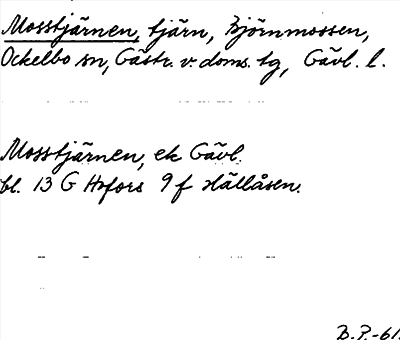 Mosstjärnen, tjärn, Björnmossen,
Ockelbo sn, Gästr. v. doms. tg, Gävl. l.
Mosstjärnen, ek Gävl.
bl. 13 G Hofors 9 f Hällåsen.
B.P.-61.